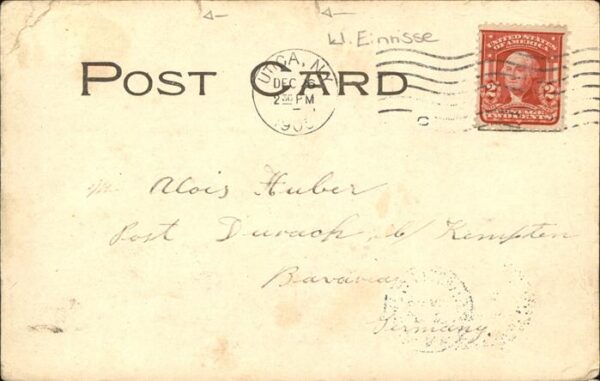 W. Einrisse
UNITED STATES
OF AMERICA
2 2
POSTAGE
TWO CENTS
POST CARD
UTICA, N.Y.
DEC 6
2 30 PM
190
C
Alois Huber
Post Durach, b/ Kempten
Bavaria
Germany.